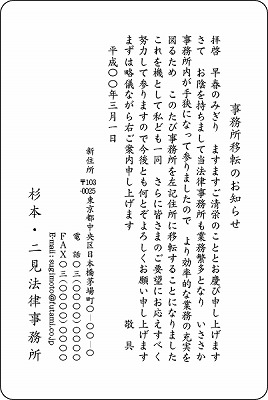 事務所移転のお知らせ
拝啓　早春のみぎり　ますますご清栄のこととお慶び申し上げます
さて　お陰を持ちまして当法律事務所も業務繁多となり　いささか
事務所内が手狭になって参りましたので　より効率的な業務の充実を
図るため　このたび事務所を左記住所に移転することになりました
これを機として私ども一同　さらに皆さまのご要望にお応えすべく
努力して参りますので今後とも何とぞよろしくお願い申し上げます
まずは略儀ながら右ご案内申し上げます　敬具
平成〇〇年三月一日
新住所
〒103-0025　東京都中央区日本橋茅場町〇ー〇ー〇
電話〇三(〇〇〇〇)〇〇〇〇
ＦＡＸ〇三(〇〇〇〇)〇〇〇〇
E-mail : sugimoto@futami.co.jp
杉本・二見法律事務所